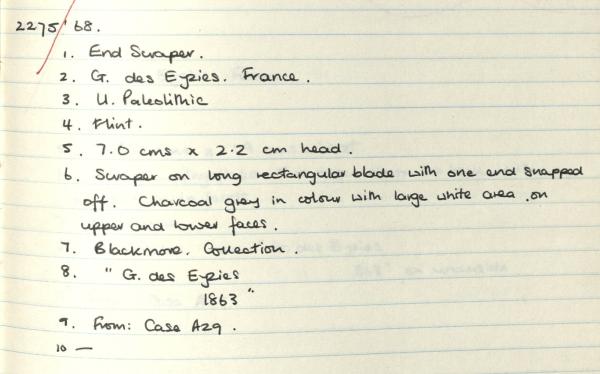 2275/68.
1. End Scraper.
2. G. des Eyzies. France.
3. U. Paleolithic
4. Flint.
5. 7.0 cms x 2.2 cm head.
6. Scraper on long rectangular blade with one end snapped
off. Charcoal grey in colour with large white area on
upper and lower faces.
7. Blackmore. Collection.
8. " G. des Eyzies
1863 "
9. From: Case A29.
10 —